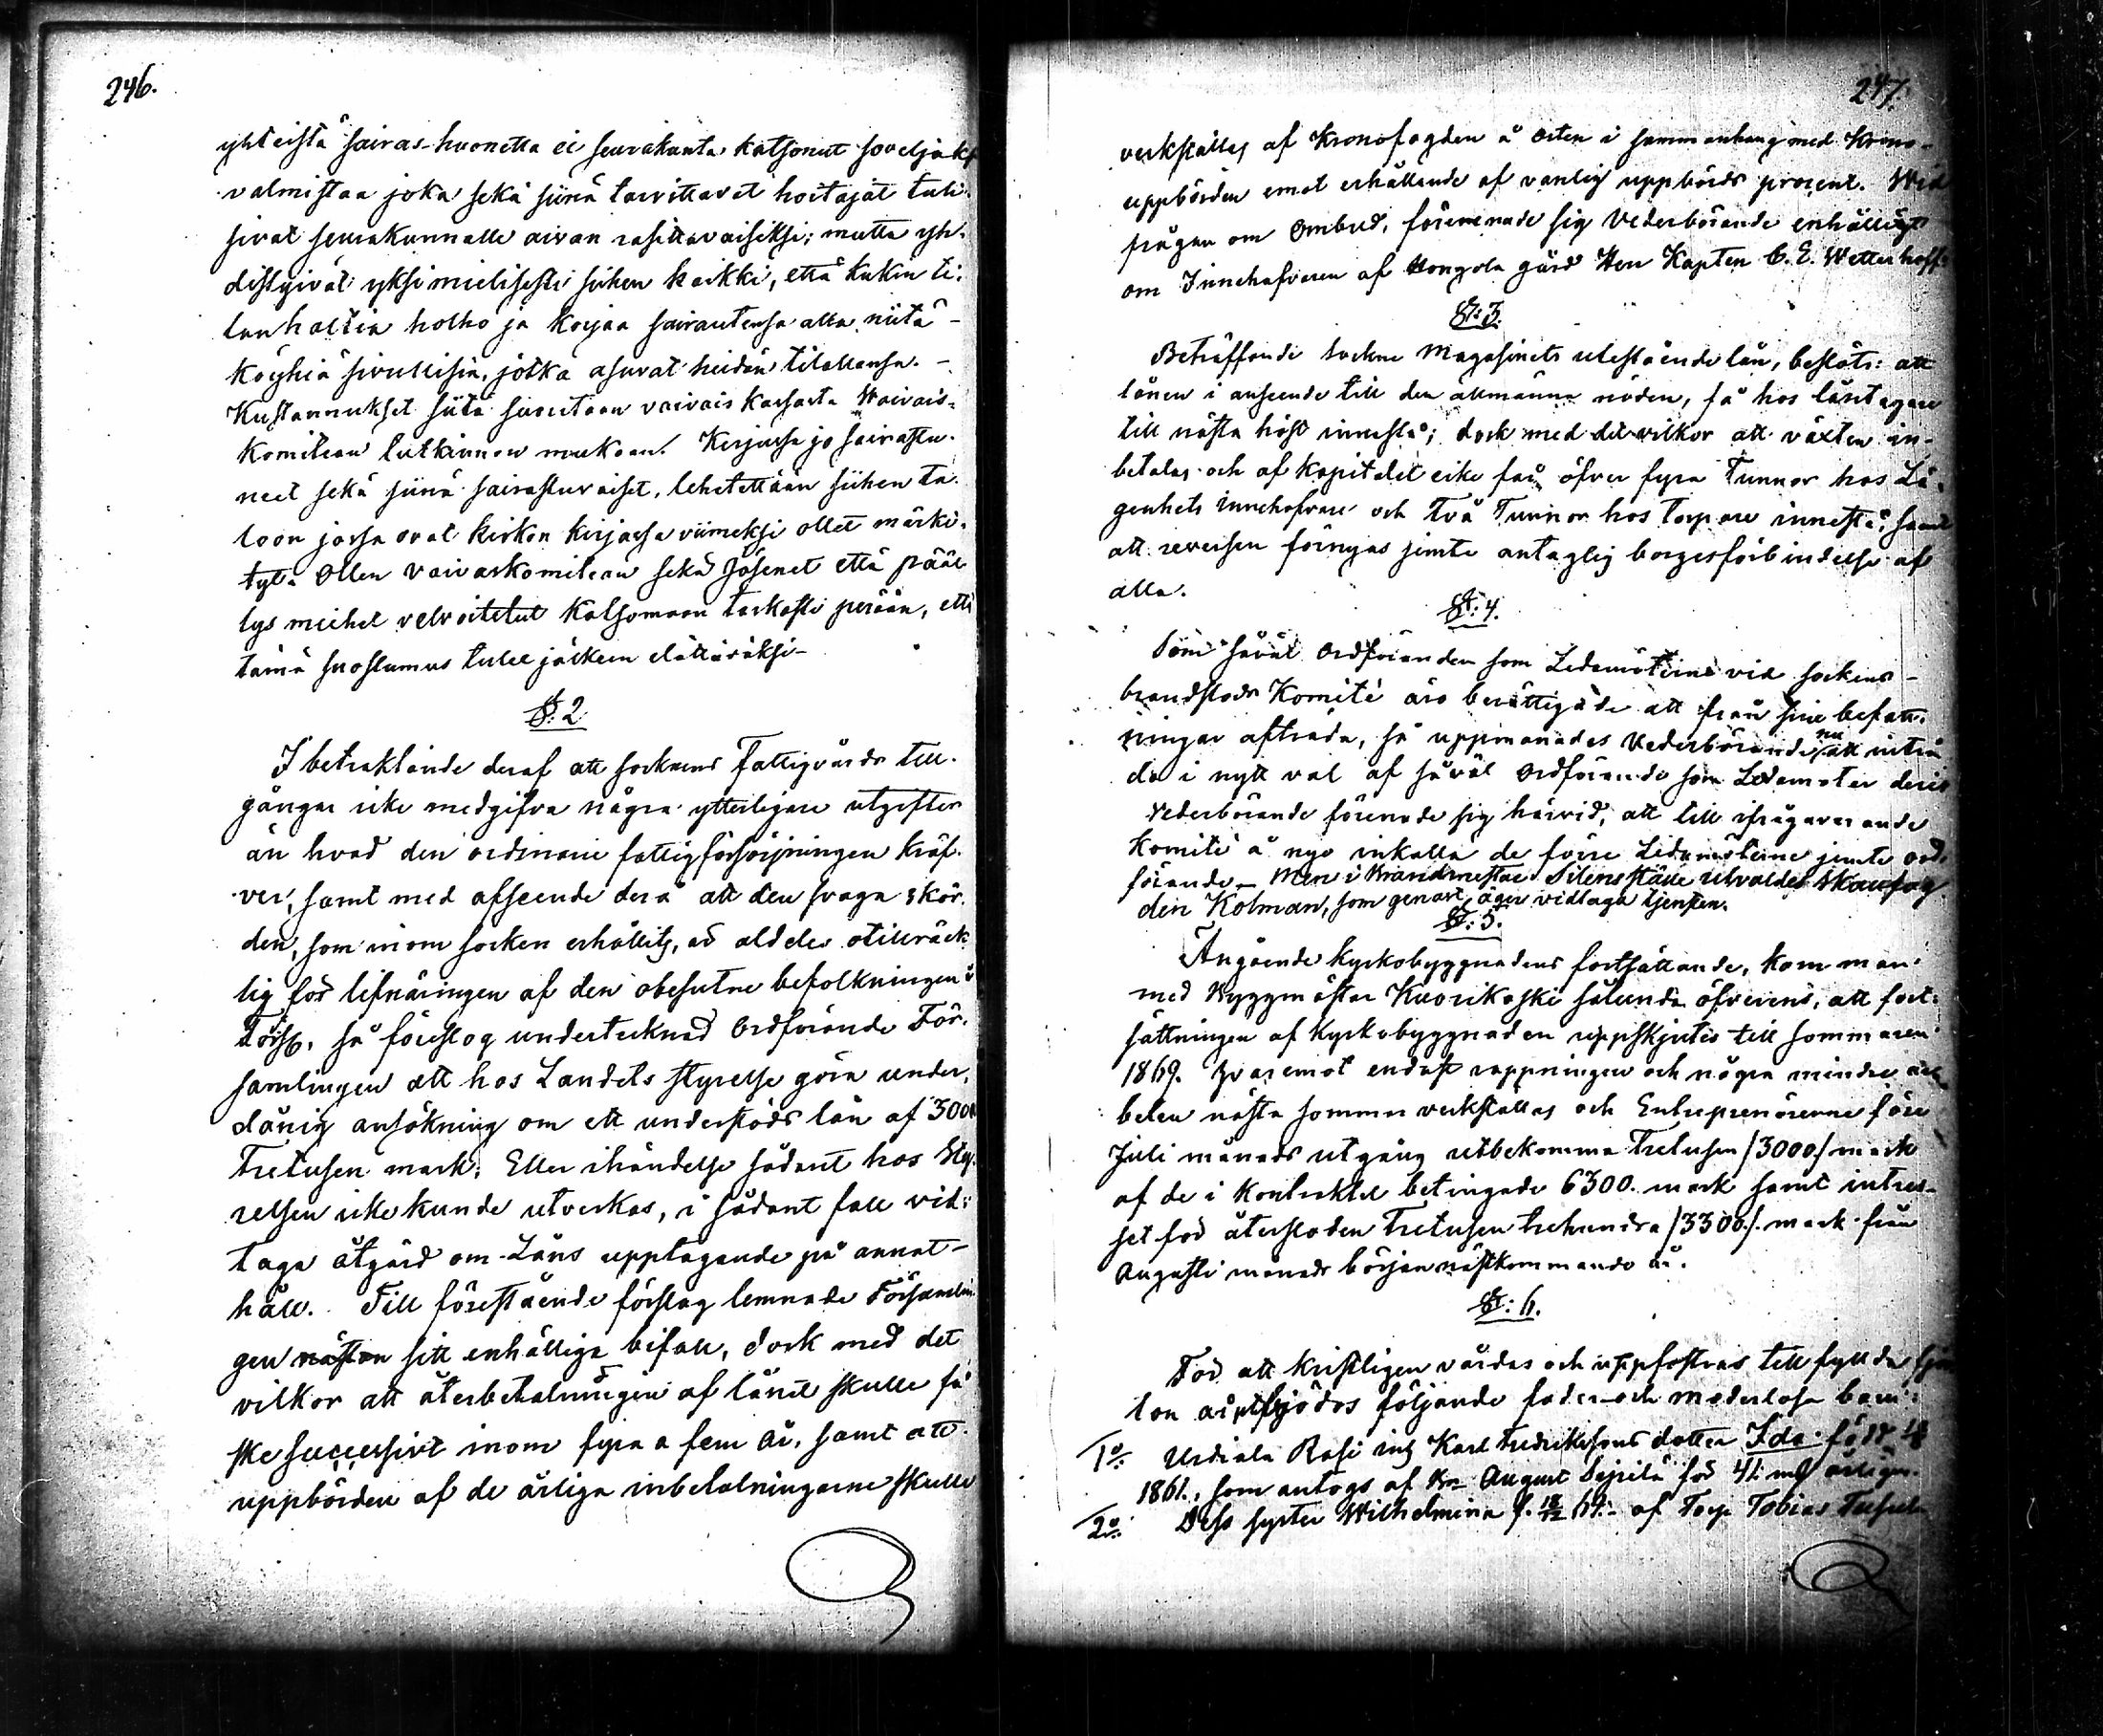 246.
yhteistä sairas-huonetta ei seurakunta katsonut soveljaksi
valmistaa joka sekä siinä tarvittavat hoitajat tuli-
sivat seurakunnalle aivan rasittavaiseksi; mutta yh-
distyivät yksimielisesti siihen kaikki, että kukin ti-
lanhaltia holho ja korjaa sairautensa alla niitä
köyhiä sivullisia, jotka asuvat heidän tilallansa. -
Kustannukset siitä suoritaan vaivais kassasta Waivais-
komitean tutkinnon mukaan. Kerjussa jo sairastu-
neet sekä siinä sairastuvaiset, lehetettään siihen ta-
loon jossa ovat kirkon kirjassa viimeksi ollet märki-
tyt. Ollen vaivaskomitean sekä jäsenet että pääl-
lys miehet velvoitetut katsomaan tarkasti perään, että
tämä suostumus tulee jälkeen elättäväksi -
§. 2
I betraktande deraf att socknens Fattigvårds till-
gångar icke medgifva några ytterligare utgifter
än hvad den ordinarie fattigförsörjningen kräf-
ver, samt med afseende derå att den svaga skör-
den, som inom socken erhållits, är aldeles otillräck-
lig för lifnäringen af den obesutne befolkningen i
så föreslog undertecknad Ordförande För-
samlingen att hos Landets styrelse göra under-
dånig ansökning om ett understöds lån af 3000
Tretusen mark. Eller ihändelse sådant hos Sty-
relsen icke kunde utverkas, i sådant fall vid-
taga åtgärd om Låns upptagande på annat
håll. Till förestående förslag lemnade Församlin-
gen nästan sitt enhälliga bifall, dock med det
vilkor att återbetalningen af lånet skulle få
ske successivt inom fyra a fem år, samt att
uppbörden af de årliga inbetalningarne skulle
247.
verkställes af Kronofogden å orten i sammanhang med Krono-
uppbörden emot erhållande af vanlig uppbörds procent. Wid
frågan om Ombud, förenade sig Vederbörande enhälligt
om Innehafvaren af Hongola gård Herr Kapten C. E. Wetterhoff.
§. 3.
Beträffande sockne Magasinets utestående lån, beslöts: att
lånen i anseende till den allmänna nöden, få hos låntagare
till nästa höst innestå; dock med det vilkor att växten in-
betalas och af kapitalet icke får öfver fyra Tunnor hos Lä-
genhets innehafvare och två Tunnor hos torpare innestå, samt
att reversen förnyas jemte antaglig borgesförbindelse af
alla.
§. 4.
Som såväl Ordföranden som Ledamöterna vid sockens
brandstods Komité äro berättigade att från sine befatt-
ningar afträda, så uppmanades Vederbörande nu att inträ-
da i nytt val af såväl Ordförande som Ledamoter deri
Vederbörande förenade sig härvid, att till ifrågavarande
Komité å nyo inkalla de förre Ledamöterne jemte ord-
förande - Men i Brandmästar Silens ställe utvaldes Skaufog-
den Kolman, som genast äger vidtaga tjensten.
§. 5.
Angående kyrkobyggnadens fortsättande, kom man
med Byggmästar Kuorikoski sålunda öfverens, att fort-
sättningen af Kyrkobyggnaden uppskjutes till sommaren
1869. Hvaremot endast rappningen och några mindre ar-
beten nästa sommar verkställas och Entreprenörerne före
Juli månads utgång utbekomma Tretusen /3000/ mark
af de i kontraktet betingade 6300. mark samt intres-
set för återstoden Tretusen trehundra /3300/. mark från
Augusti månads början nästkommande år.
§. 6.
För att kristligen vårdas och uppfostras till fyllda
ton år utbjödos följande fader- och moderlösa barn:
1o Urdiala Rasi Karl Fredrikssons dotter Ida född
1861., som antogs af August Seppilä för 41: mk årligen.
2o Dess syster Wilhelmina f. 18/12 64. - af Torp Tobias